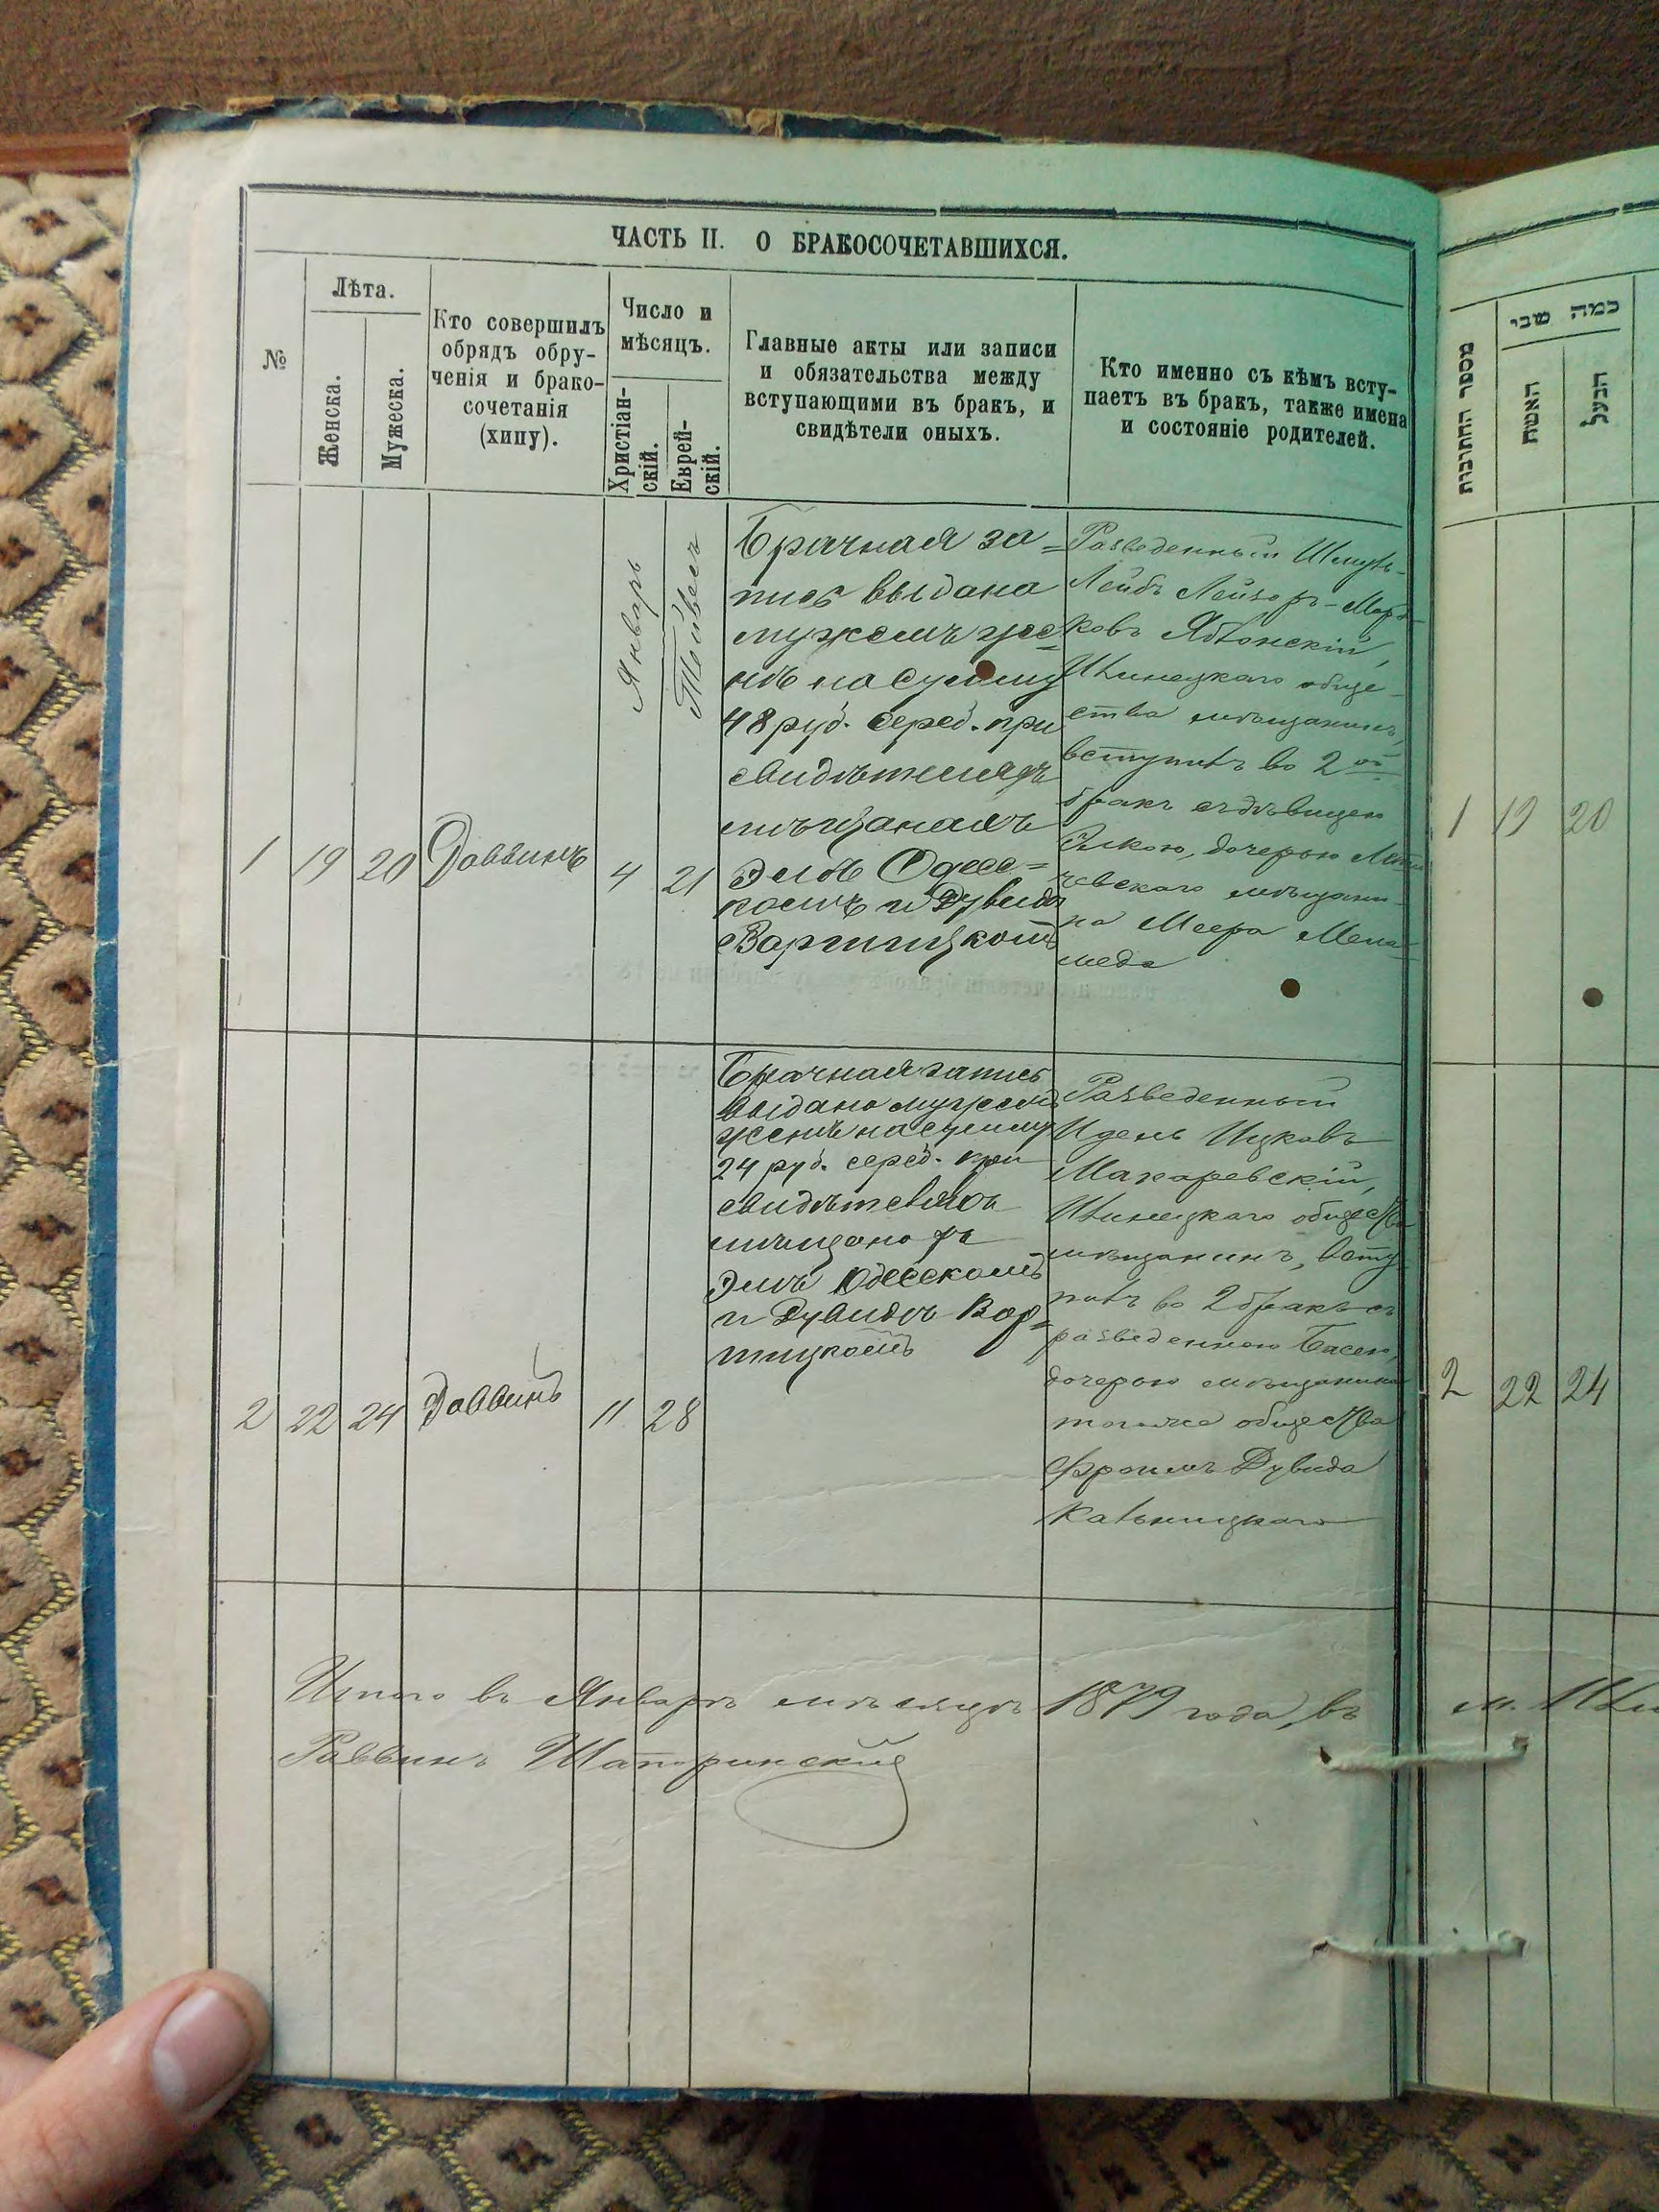 ЧАСТЬ II. О БРАКОСОЧЕТАВШИХСЯ.
№
Лѣта.
Женска.
Мужеска.
Кто совершилъ
обрядъ обру-
ченія и брако-
сочетанія
(хипу).
Число и
мѣсяцъ.
Христіан-
скій.
Еврей-
скій.
Главные акты или записи
и обязательства между
вступающими въ бракъ, и
свидѣтели оныхъ.
Кто именно съ кѣмъ всту-
паетъ въ бракъ, также имена
и состояніе родителей.
1
19
20
Раввинъ
Январь
4
Тейвесъ
21
Брачная за=
пись выдана
мужемъ же=
нѣ на сумму
48 руб. сереб. при
свидѣтеляхъ
мѣщанахъ
Элѣ Одесс=
комъ и Дувидѣ
Вортицкомъ
Разведенный Шмуль-
Лейбъ Лейзоръ-Мор-
ковъ Яблонскій,
Ильинецкаго обще-
ства мѣщанинъ,
вступилъ во 2ой
бракъ съ дѣвицею
дочерью
мѣщани-
на Меера Мела-
меда
2
22
24
Раввинъ
11
28
Брачная запись
выдана мужемъ
женѣ на сумму
24 руб. сереб. при
свидѣтеляхъ
мѣщанахъ
Элѣ Одесскомъ
и Дувидѣ Вор=
тицкомъ
Разведенный
Идель Ицковъ
Макаревскій,
Ильинецкаго общества
мѣщанинъ, всту-
пилъ во 2 бракъ съ
разведенною Басею,
дочерью мѣщанина
того же общества
Фроимъ Дувида
Кальницкаго
Итого въ Январѣ мѣсяцѣ 1879 года, въ
Раввинъ
מספר החתונות
כמה שני
האשה
הבעל
1
19
20
2
22
24
м.